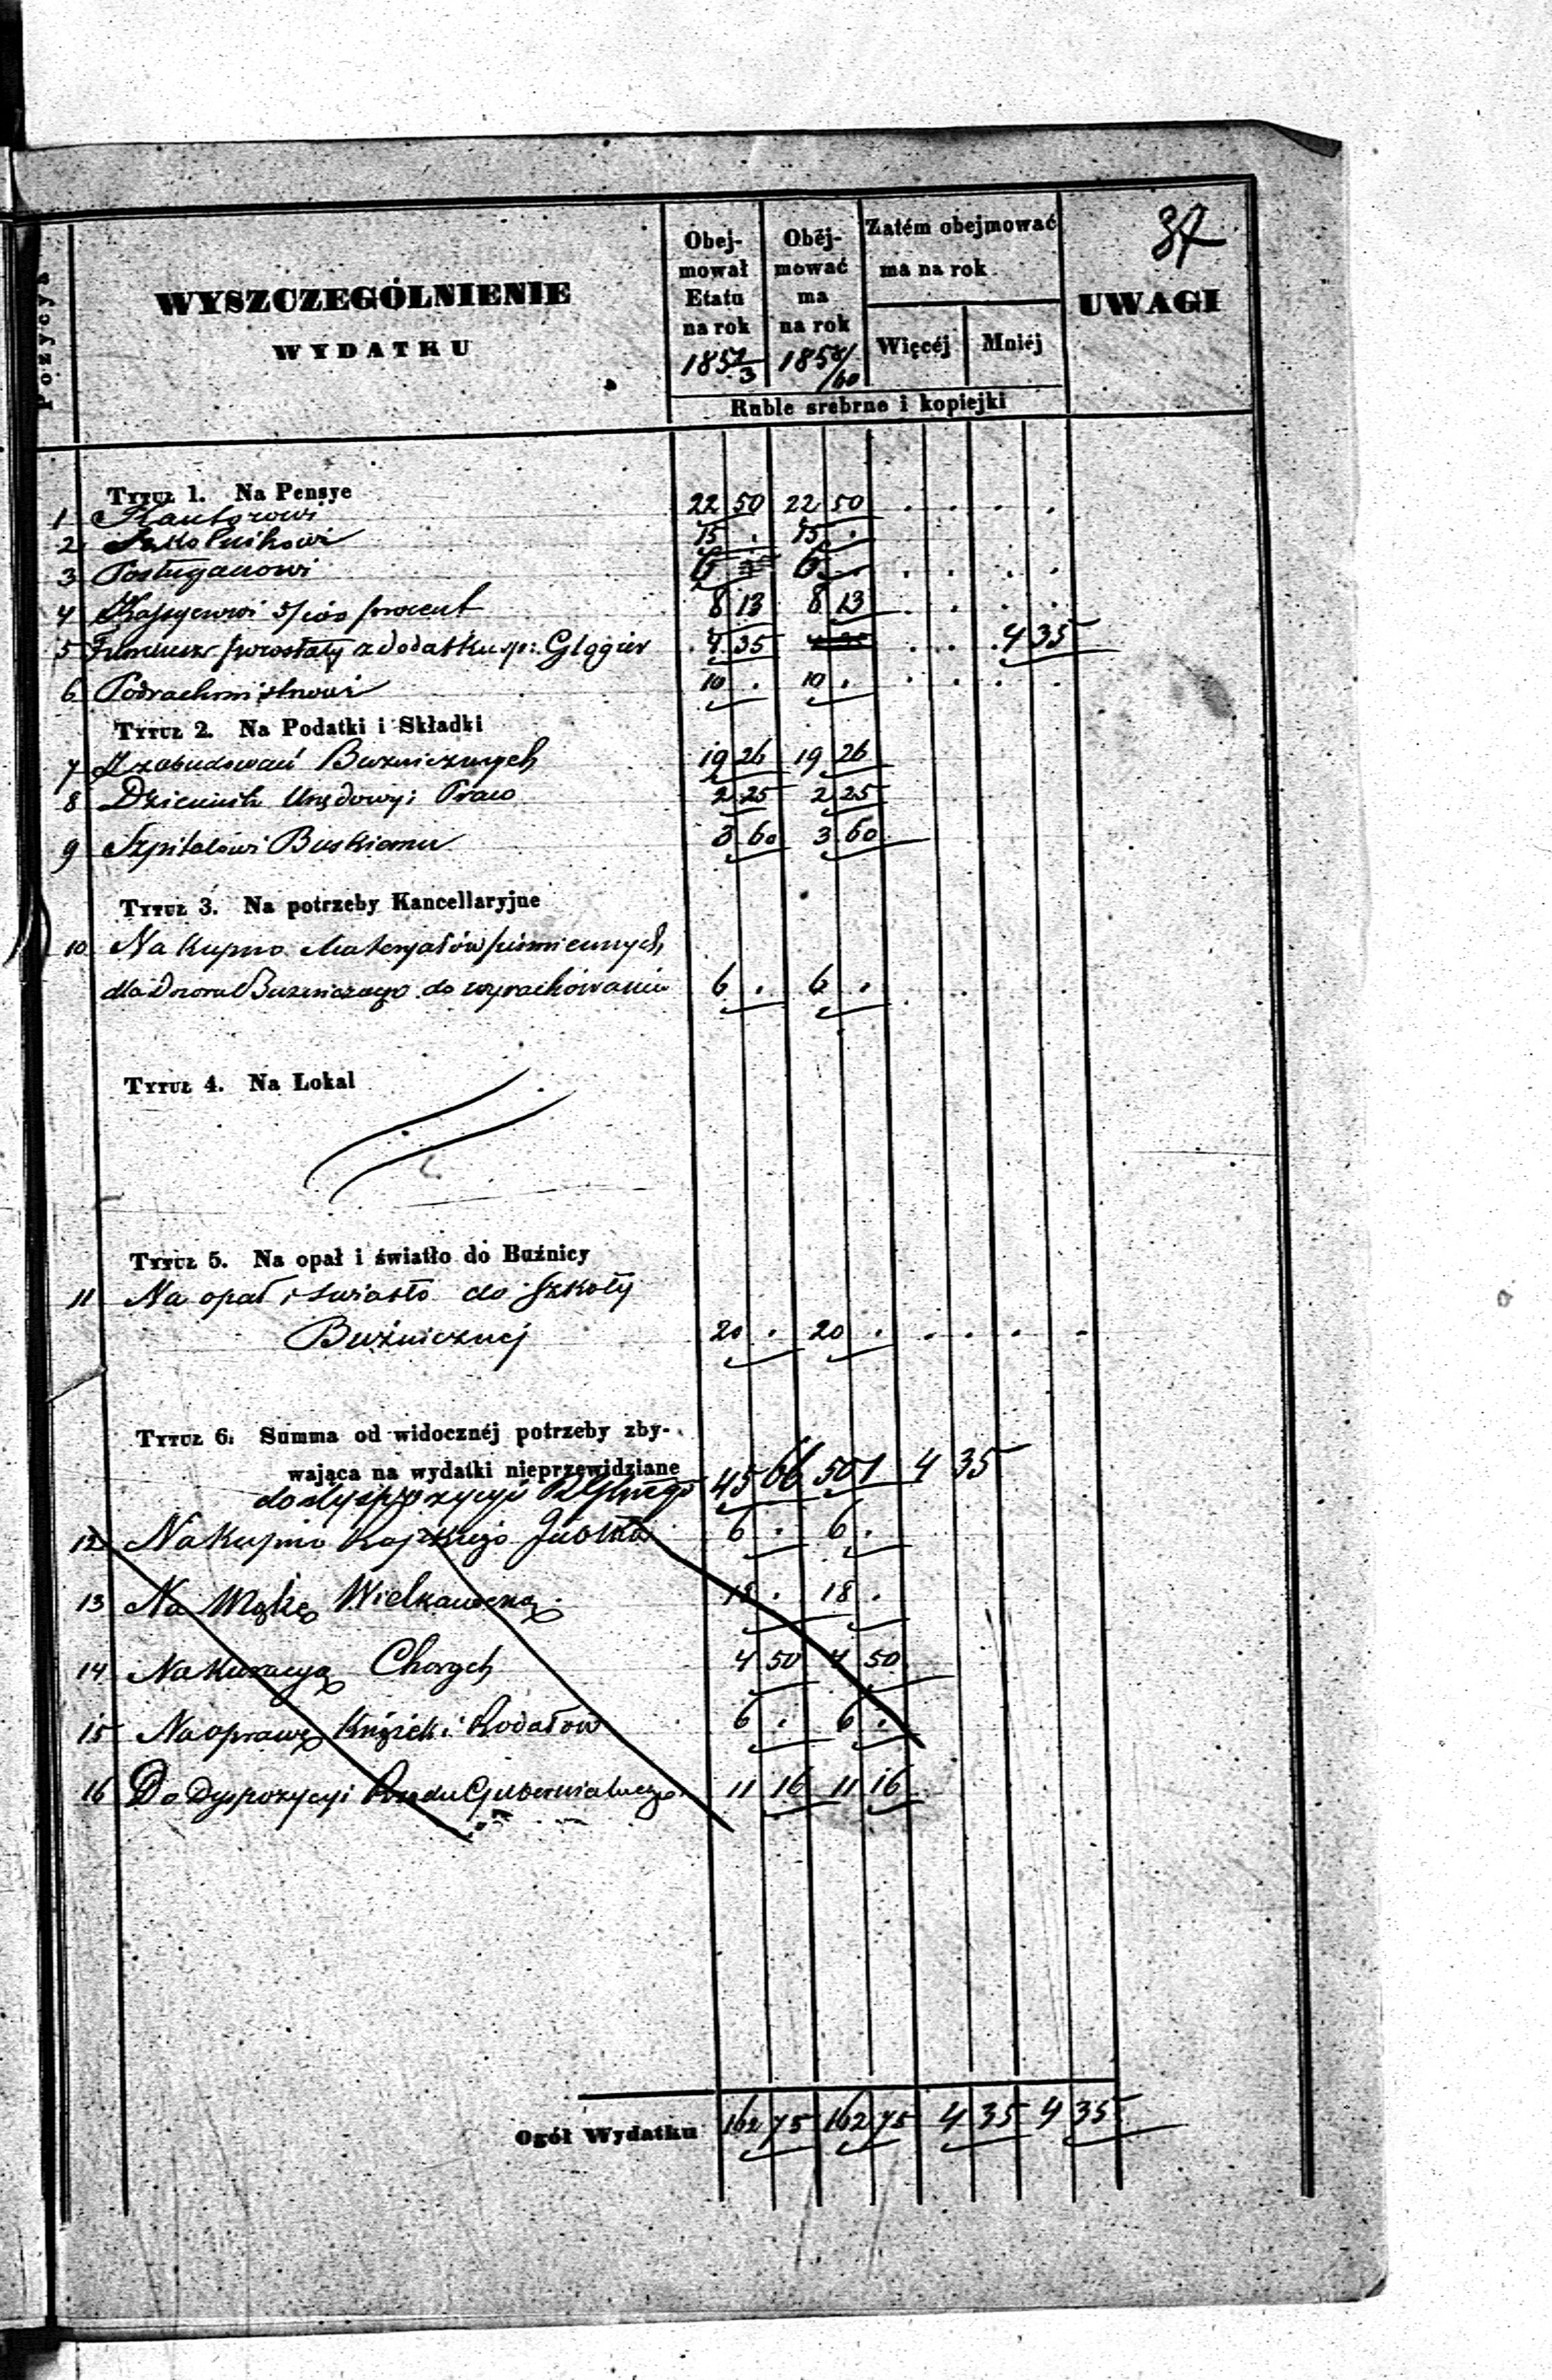 37
Pozycya
WYSZCZEGÓLNIENIE
WYDATKU
Obej-
mował
Etatu
na rok
1857/3
Obej-
mować
ma
na rok
1858/60
Zatém obejmować
ma na rok
Więcéj
Mniéj
UWAGI
Ruble srebrne i kopiejki
Tytuł 1. Na Pensye
1 Kantorowi 22 50 22 50 . . . .
2 Szkolnikowi 15 . 15 .
3 Posługaczowi 6 6 . . . . .
4 Kassyerowi 5/100 procent 8 13 8 13 . . . .
5 Fundusz pozostały z dodatku 4 35 4 35 . . . 4 35
6 Podrachmistrzowi 10 . 10 . . . . .
Tytuł 2. Na Podatki i Składki
7 Z zabudowań Bużnicznych 19 26 19 26
8 Dziennik Urzędowy i Praw 2 25 2 25
9 Szpitalowi Buskiemu 3 60 3 60
Tytuł 3. Na potrzeby Kancellaryjne
10 Na kupno Materyałów piśmiennych
dla Dozoru Bużniczego do wyrachowania 6 . 6 . . . . .
Tytuł 4. Na Lokal
Tytuł 5. Na opał i światło do Buźnicy
11 Na opał i światło do Szkoły
Bużnicznej 20 . 20 . . . . .
Tytuł 6. Summa od widocznéj potrzeby zby-
wająca na wydatki nieprzewidziane
do dyspozycyi 45 66 50 1 4 35
12 Na kupno Rajskiego Jabłka 6 . 6 .
13 Na Mąkę Wielkanocną 18 . 18 .
14 Na Kuracyą Chorych 4 50 4 50
15 Na oprawę Książek i Rodałów 6 . 6 .
16 Do Dyspozycyi Rządu Gubernialnego 11 16 11 16
Ogół Wydatku 162 75 162 75 4 35 4 35